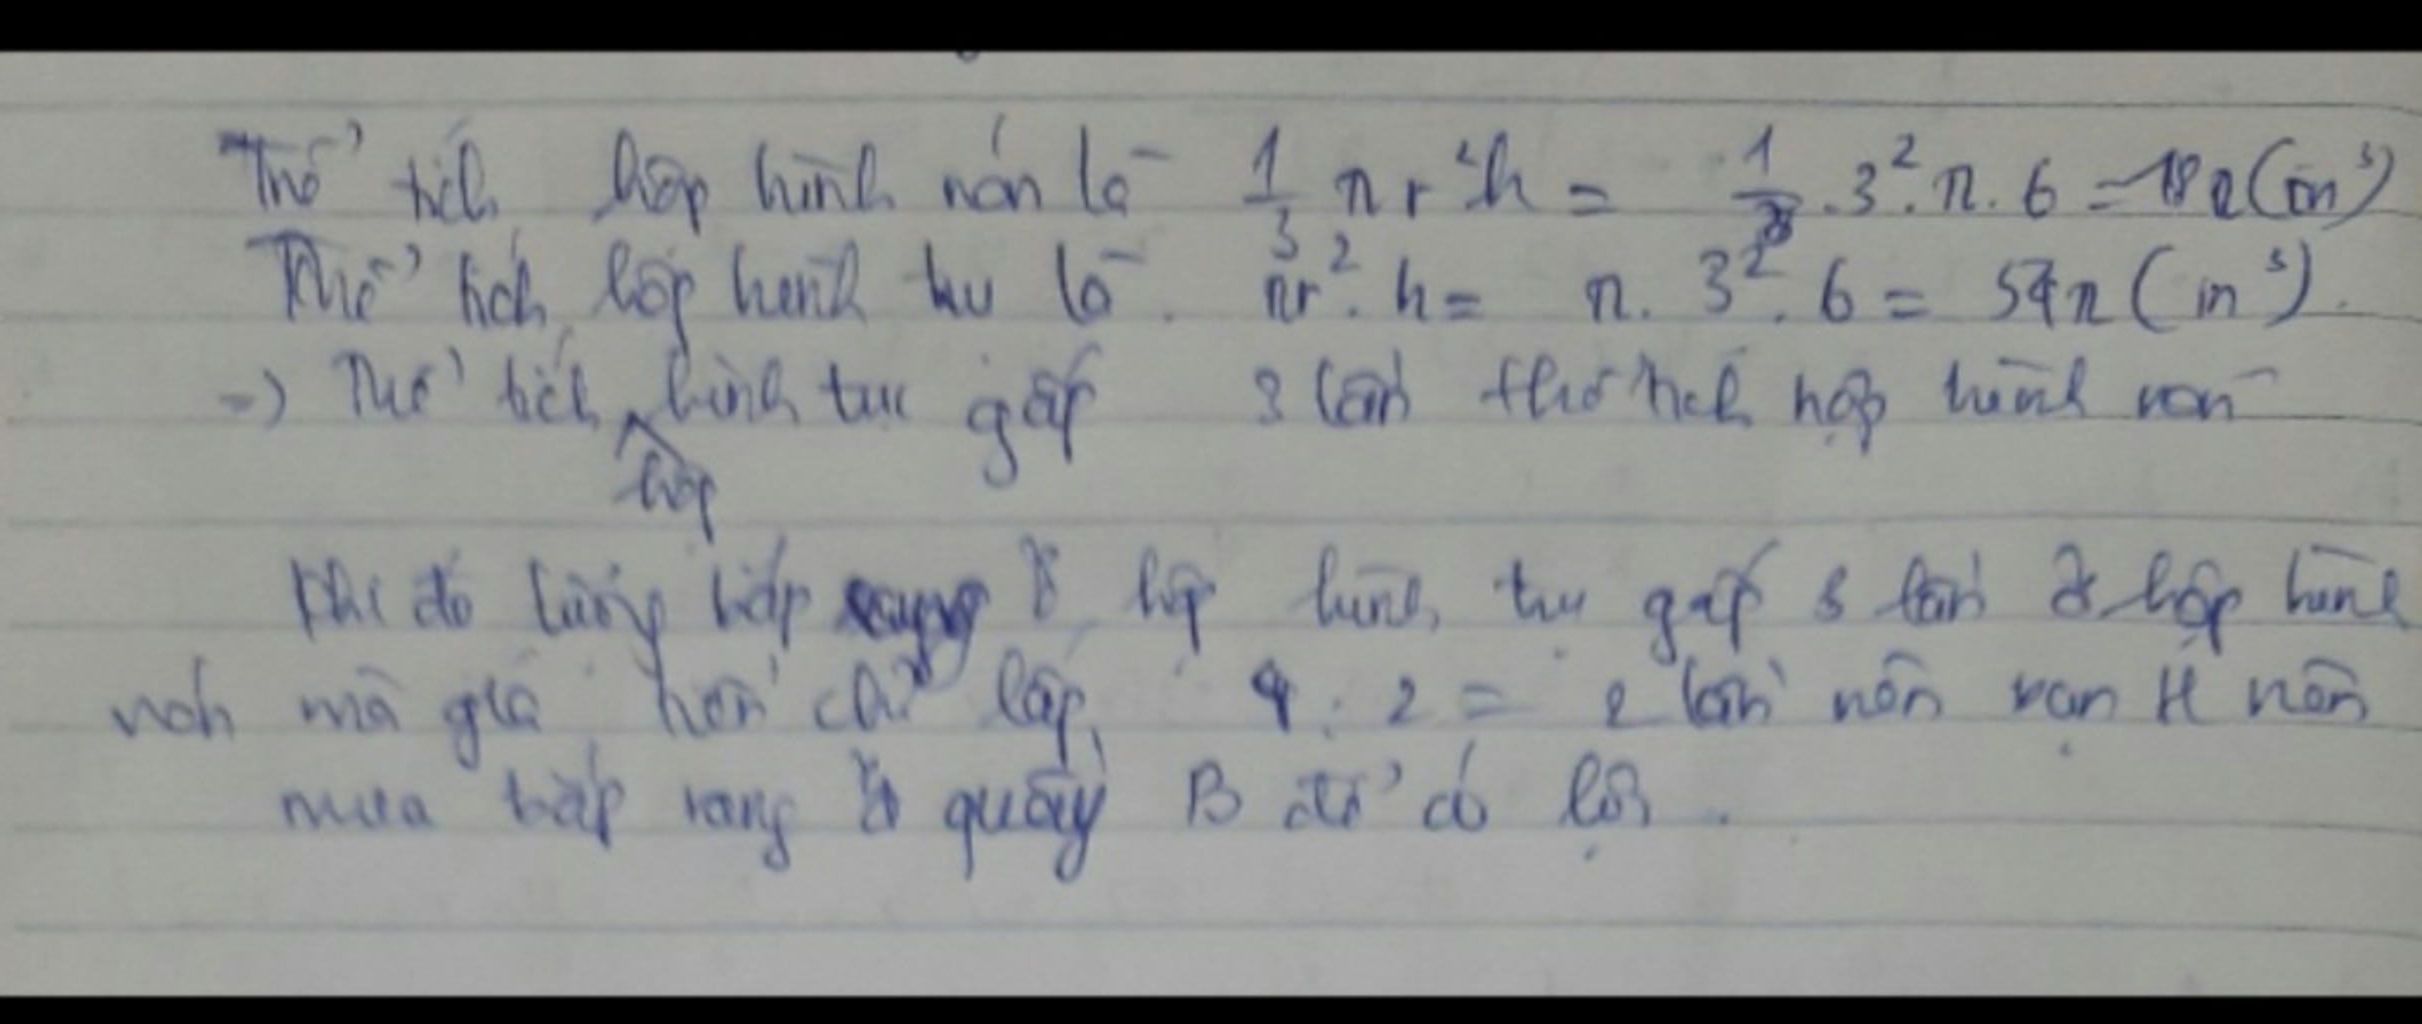 Thể tích hộp hình nón là 1/3 πr²h = 1/3 . 3² . π . 6 = 18π (in³)
Thể tích hộp hình trụ là . πr² . h = π . 3² . 6 = 54π (in³) .
=> Thể tích hình trụ gấp 3 lần thể tích hộp hình nón
hộp
Khi đó lượng bắp rang ở hộp hình trụ gấp 3 lần ở hộp hình
nón mà giá hơn chỉ gấp 4 : 2 = 2 lần nên bạn H nên
mua bắp rang ở quầy B để có lợi .